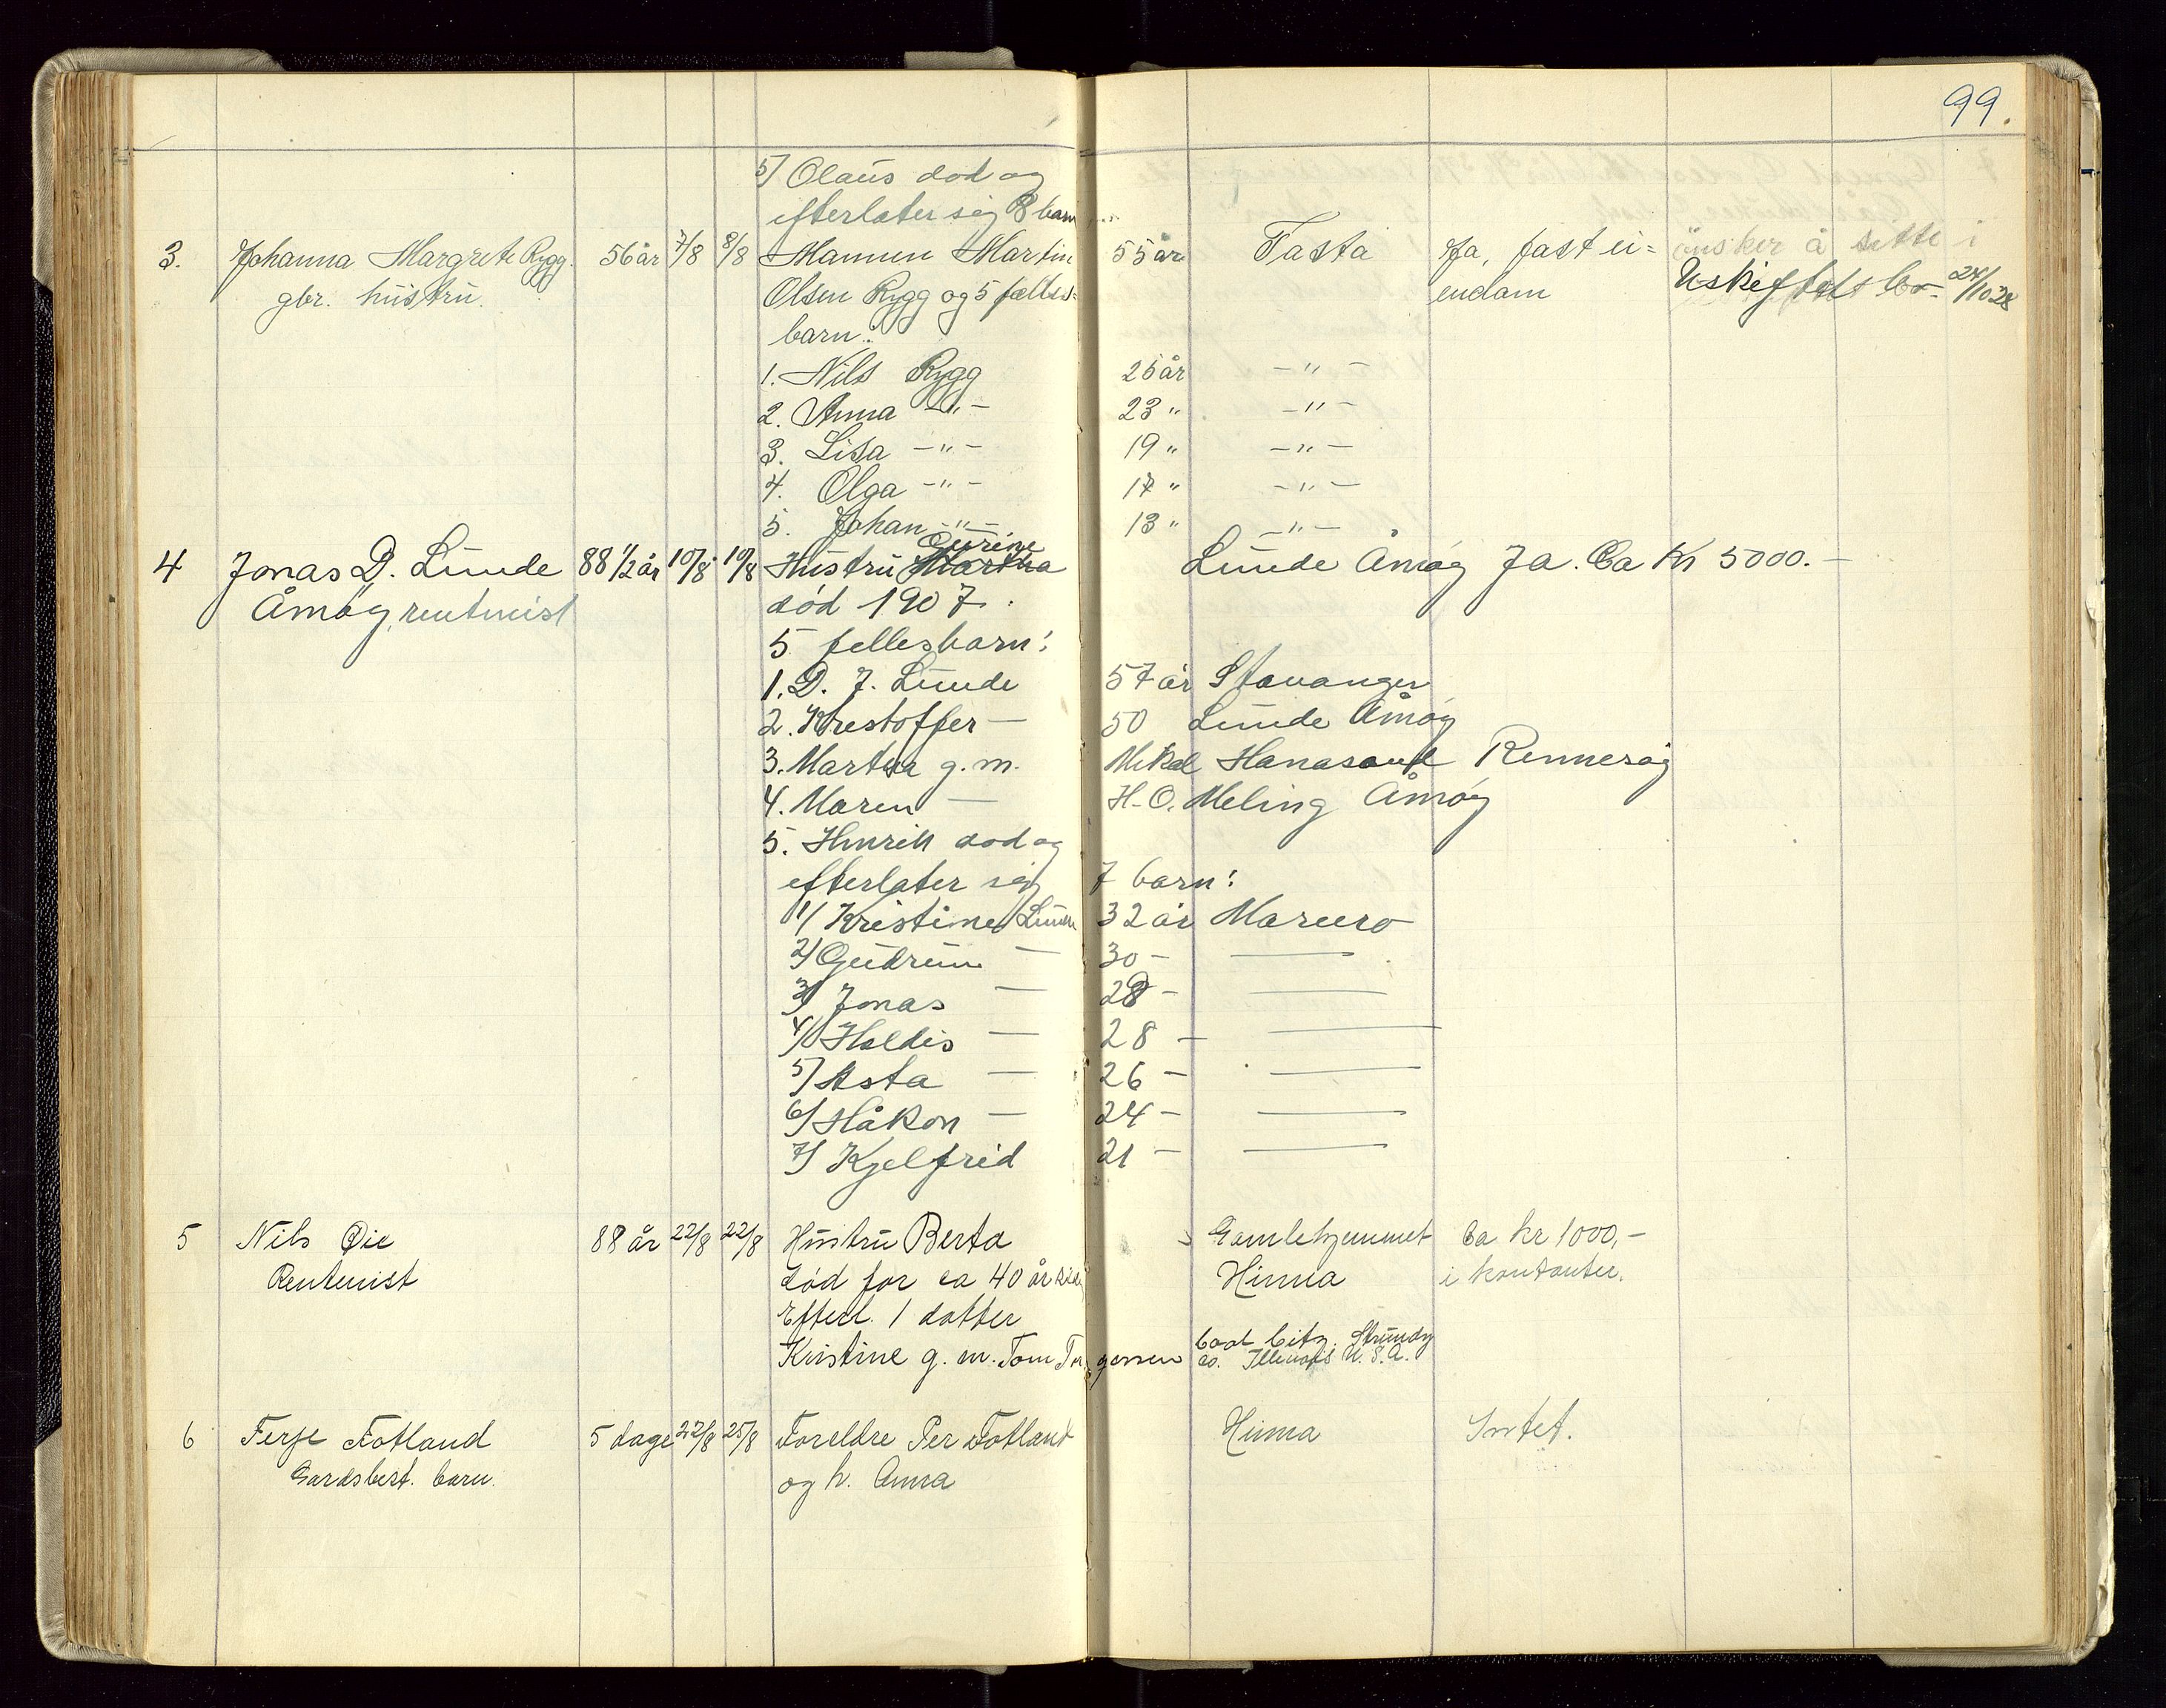 99.
5/ Olaus død og
efterlater sig 8 barn
3. Johanna Margrete Rygg. 56 år 7/8 8/8 Mannen Martin 55 år Tasta Ja, fast ei= ønsker å sitte i
gbr. hustru. Olsen Rygg og 5 felles= endom Uskiftet bo 24/10 28
barn:
1. Nils Rygg 25 år -"-
2. Anna -"- 23 " -"-
3. Lisa -"- 19 " -"-
4. Olga -"- 17 " -"-
5. Johan -"- 13 " -"-
4 Jonas D. Lunde 88 1/2 år 10/8 10/8 Hustru Martha Gurine Lunde Åmøy Ja. Ca Kr 5000.-
Åmøy, rentenist død 1907.
5 fellesbarn:
1. D. J. Lunde 57 år Stavanger
2. Krestoffer — 50 Lunde Åmøy
3. Martha g.m. Mikal Hanasand Rennesøy
4. Maren — H. O. Meling Åmøy
5. Henrik død og
efterlater sig 7 barn:
1/ Kristine Lunde 32 år Marnero
2/ Gudrun — 30 - —
3/ Jonas — 28 - —
4/ Haldis — 28 - —
5/ Asta — 26 - —
6/ Håkon — 24 - —
7/ Kjelfrid 21 - —
5 Nils Øie 88 år 22/8 22/8 Hustru Berta Gamlehjemmet Ca kr 1000,-
Rentenist død for ca 40 år sid Hinna i kontanter.
Efterl. 1 datter
Kristine g. m. Tom Torgersen Coal City. Grundy
co. Illinois U.S.A.
6 Terje Fotland 5 dage 22/8 25/8 Foreldre Per Fotland Hinna Intet.
Gardsbest. barn. og h. Anna